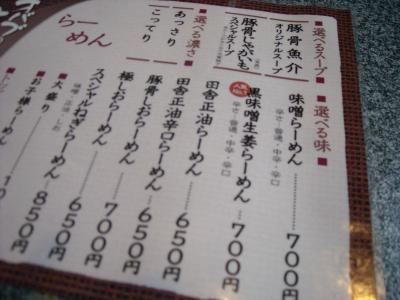 ■選べるスープ■
豚骨魚介
オリジナルスープ
豚骨じゃがいも
スペシャルスープ
■選べる濃さ■
あっさり
こってり
らーめん
■選べる味■
味噌らーめん 700円
辛さ・普通・中辛・辛口
黒味噌生姜らーめん 700円
辛さ・普通・中辛・辛口
田舎正油らーめん 650円
田舎正油辛口らーめん 650円
豚骨しおらーめん 650円
極しおらーめん 700円
スペシャルねぎらーめん 850円
味噌・正油・しお
大盛り 850円
お子様らーめん